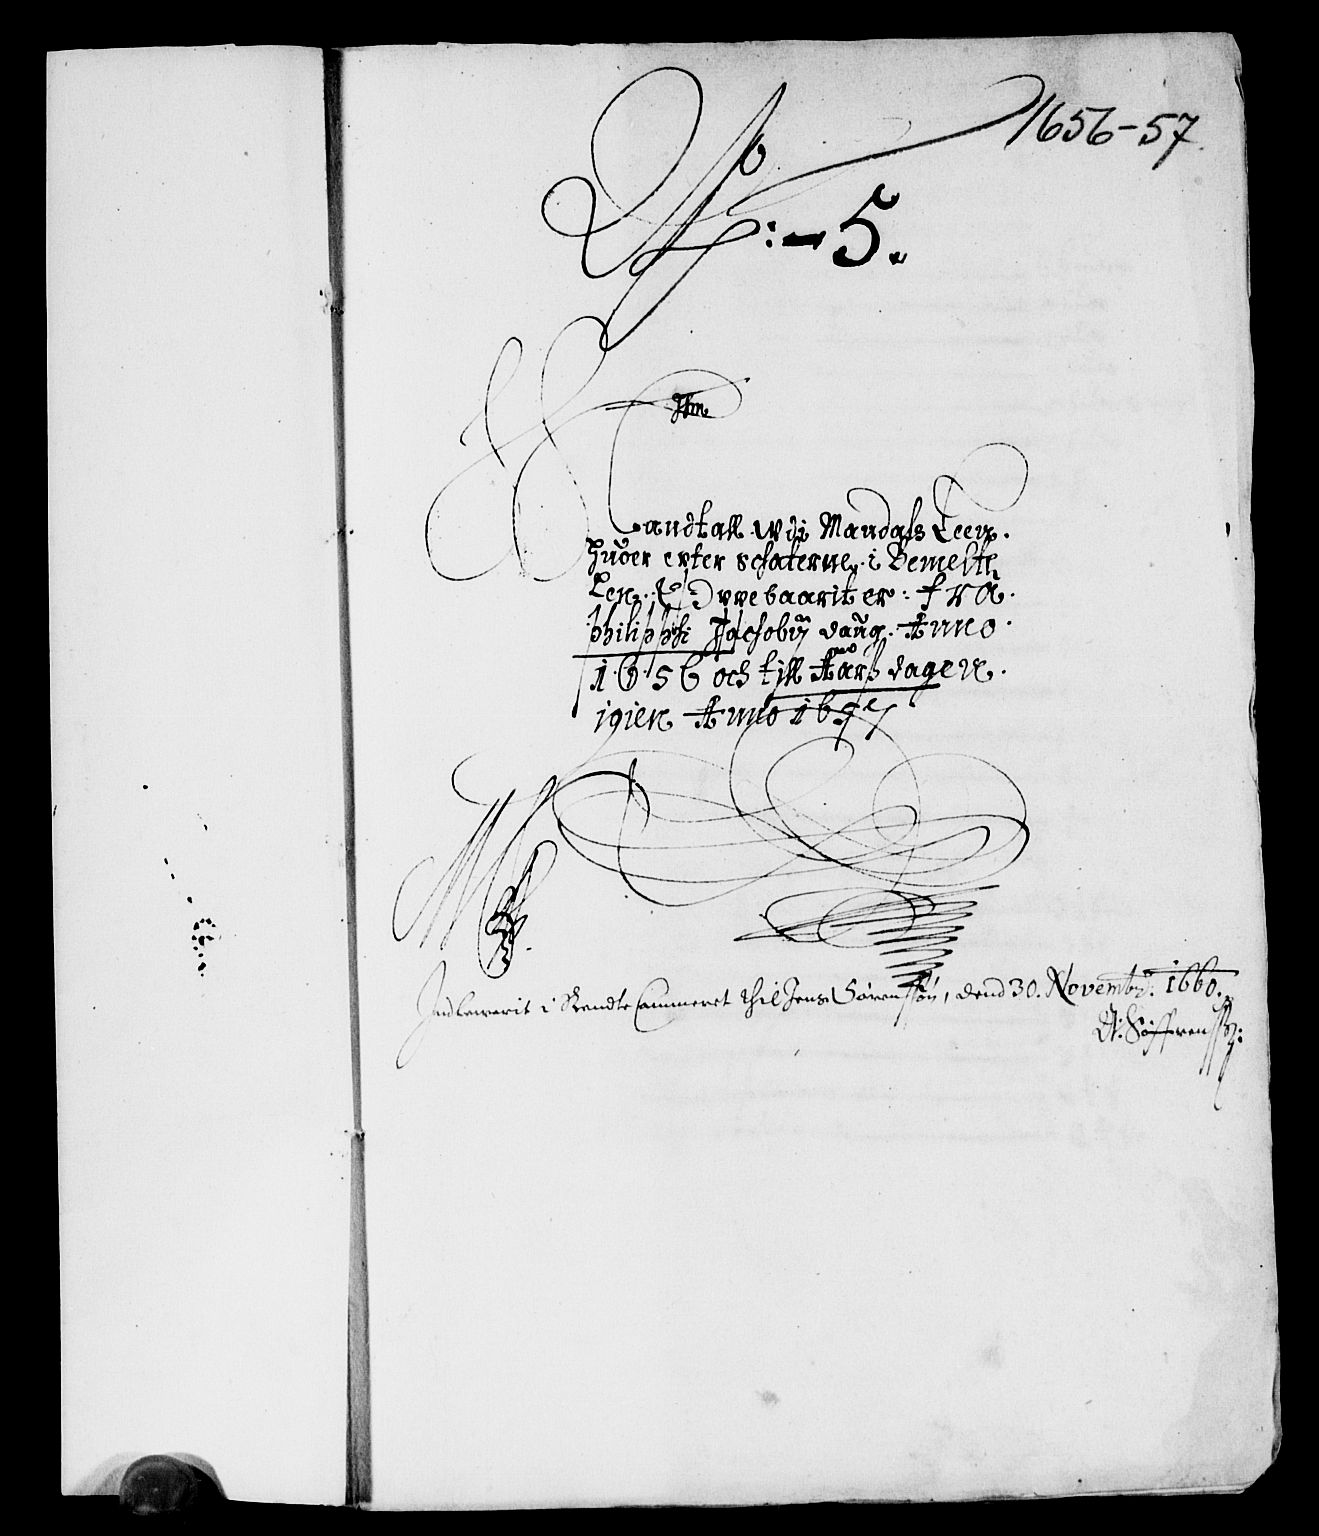 1656-57
No: - 5.
Mandtall udi Mandals Leen.
huor epter schaterne i Bemelte
Len. Er Oppebaarit er: fra.
Philippi Jachobij daug. Anno
1656 och till Aarß dagen.
igien Anno 1657
Indlewerit i Rendte Cammeret thil Jens Sørensøn, dend 30. Novembr: 1660.
Søffrenss: